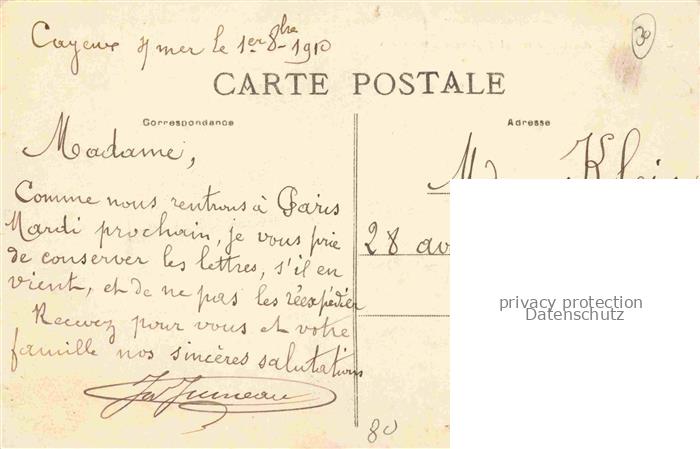 Cayeux s/ mer le 1er 8bre 1910
30
CARTE POSTALE
Correspondance
Adresse
Madame,
Comme nous rentrons à Paris
Mardi prochain, je vous prie
de conserver les lettres, s'il en
vient, et de ne pas les réexpédier
Recevez pour vous et votre
famille nos sincères salutations
28 av
80
privacy protection
Datenschutz